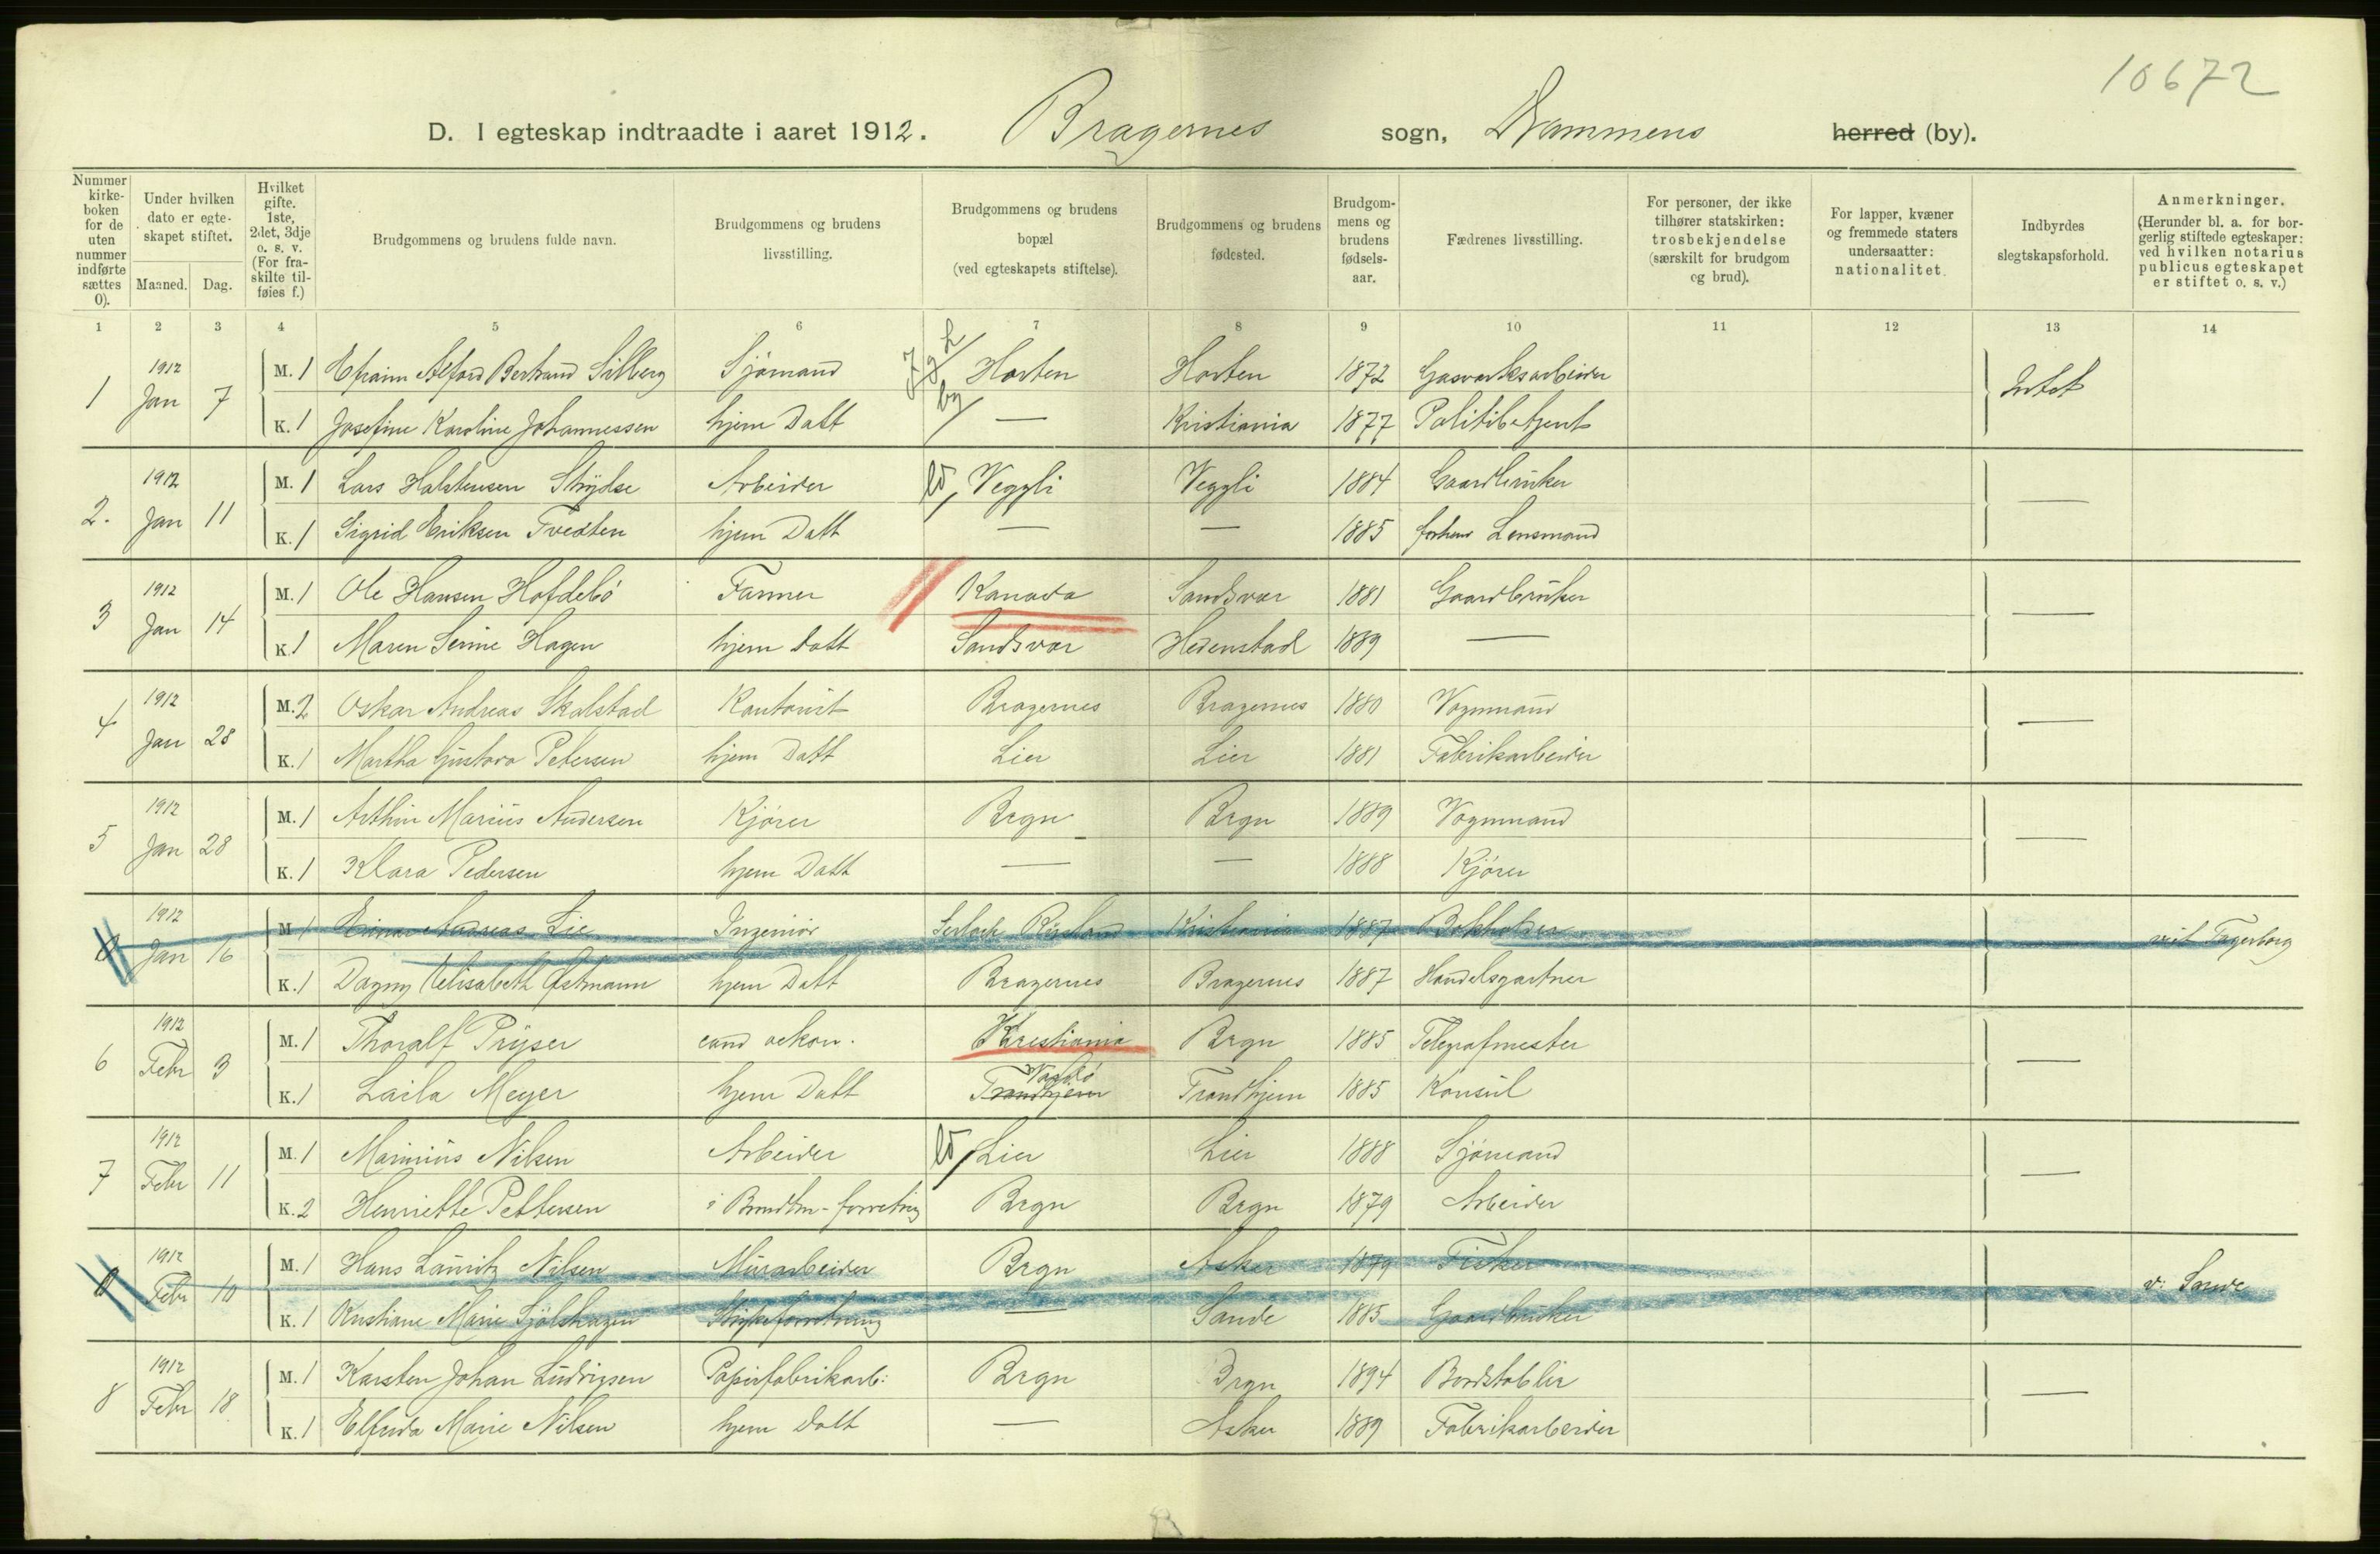 10672
D. I egteskap indtraadte i aaret 1912. Bragernes sogn, Drammens herred (by).
Nummer i kirkeboken for de uten nummer indførte sættes 0).
Under hvilken dato er egteskapet stiftet.
Maaned. Dag.
Hvilket gifte. 1ste, 2det, 3dje o. s. v. (For fraskilte tilføies f.)
Brudgommens og brudens fulde navn.
Brudgommens og brudens livsstilling.
Brudgommens og brudens bopæl (ved egteskapets stiftelse).
Brudgommens og brudens fødested.
Brudgommens og brudens fødselsaar.
Fædrenes livsstilling.
For personer, der ikke tilhører statskirken: trosbekjendelse (særskilt for brudgom og brud).
For lapper, kvæner og fremmede staters undersaatter: nationalitet.
Indbyrdes slegtskapsforhold.
Anmerkninger. (Herunder bl. a. for borgerlig stiftede egteskaper: ved hvilken notarius publicus egteskapet er stiftet o. s. v.)
1 2 3 4 5 6 7 8 9 10 11 12 13 14
1 1912 Jan 7 M. 1 Efraim Alford Bertrand Silberg Sjömand Horten Horten 1872 Gasverksarbeider Intet
K. 1 Josefine Karoline Johannessen hjem Datt by — Kristiania 1877 Politibetjent
2. 1912 Jan 11 M. 1 Lars Halstensen Skjydse Arbeider ld, Veggli Veggli 1884 Gaardbruker —
K. 1 Sigrid Eriksen Tvedten hjem Datt — — 1885 forhenv Lensmand
3 1912 Jan 14 M. 1 Ole Hansen Hofdebö Farmer Kanada Sandsvær 1881 Gaardbruker —
K. 1 Maren Serine Hagen hjem Datt Sandsvær Hedenstad 1889 —
4 1912 Jan 28 M. 2 Oskar Andreas Skalstad Kontorist Bragernes Bragernes 1880 Vognmand —
K. 1 Martha Gustava Petersen hjem Datt Lier Lier 1881 Fabrikarbeider
5 1912 Jan 28 M. 1 Arthur Marius Andersen Kjörer Brgn Brgn 1889 Vognmand —
K. 1 Klara Pedersen hjem Datt — — 1888 Kjörer
0 1912 Jan 16 M 1 Einar Andreas Lie Ingeniör Kristiania 1887 Bokholder viet Fagerborg
K. 1 Dagny Elisabeth Østmann hjem Datt Bragernes Bragernes 1887 Handelsgartner
6 1912 Febr 3 M. 1 Thoralf Pryser cand oekon. Kristiania Brgn 1885 Telegrafmester —
K. 1 Laila Meyer hjem Datt Trondhjem Vardö Trondhjem 1885 Konsul
7 1912 Febr 11 M. 1 Marinius Nilsen Arbeider ld, Lier Lier 1888 Sjömand —
K. 2 Henriette Pettersen Brgn Brgn 1879 Arbeider
0 1912 Febr 10 M. 1 Hans Lauritz Nilsen Murarbeider Brgn Asker 1879 Fisker — v: Sande
K. 1 Kristiane Marie Sjölshagen Strykeforretning — Sande 1885 Gaardbruker
8 1912 Febr 18 M. 1 Karsten Johan Ludvigsen Papirfabrikarb: Brgn Brgn 1894 Bordstabler —
K. 1 Elfrida Marie Nilsen hjem Datt — Asker 1889 Fabrikarbeider